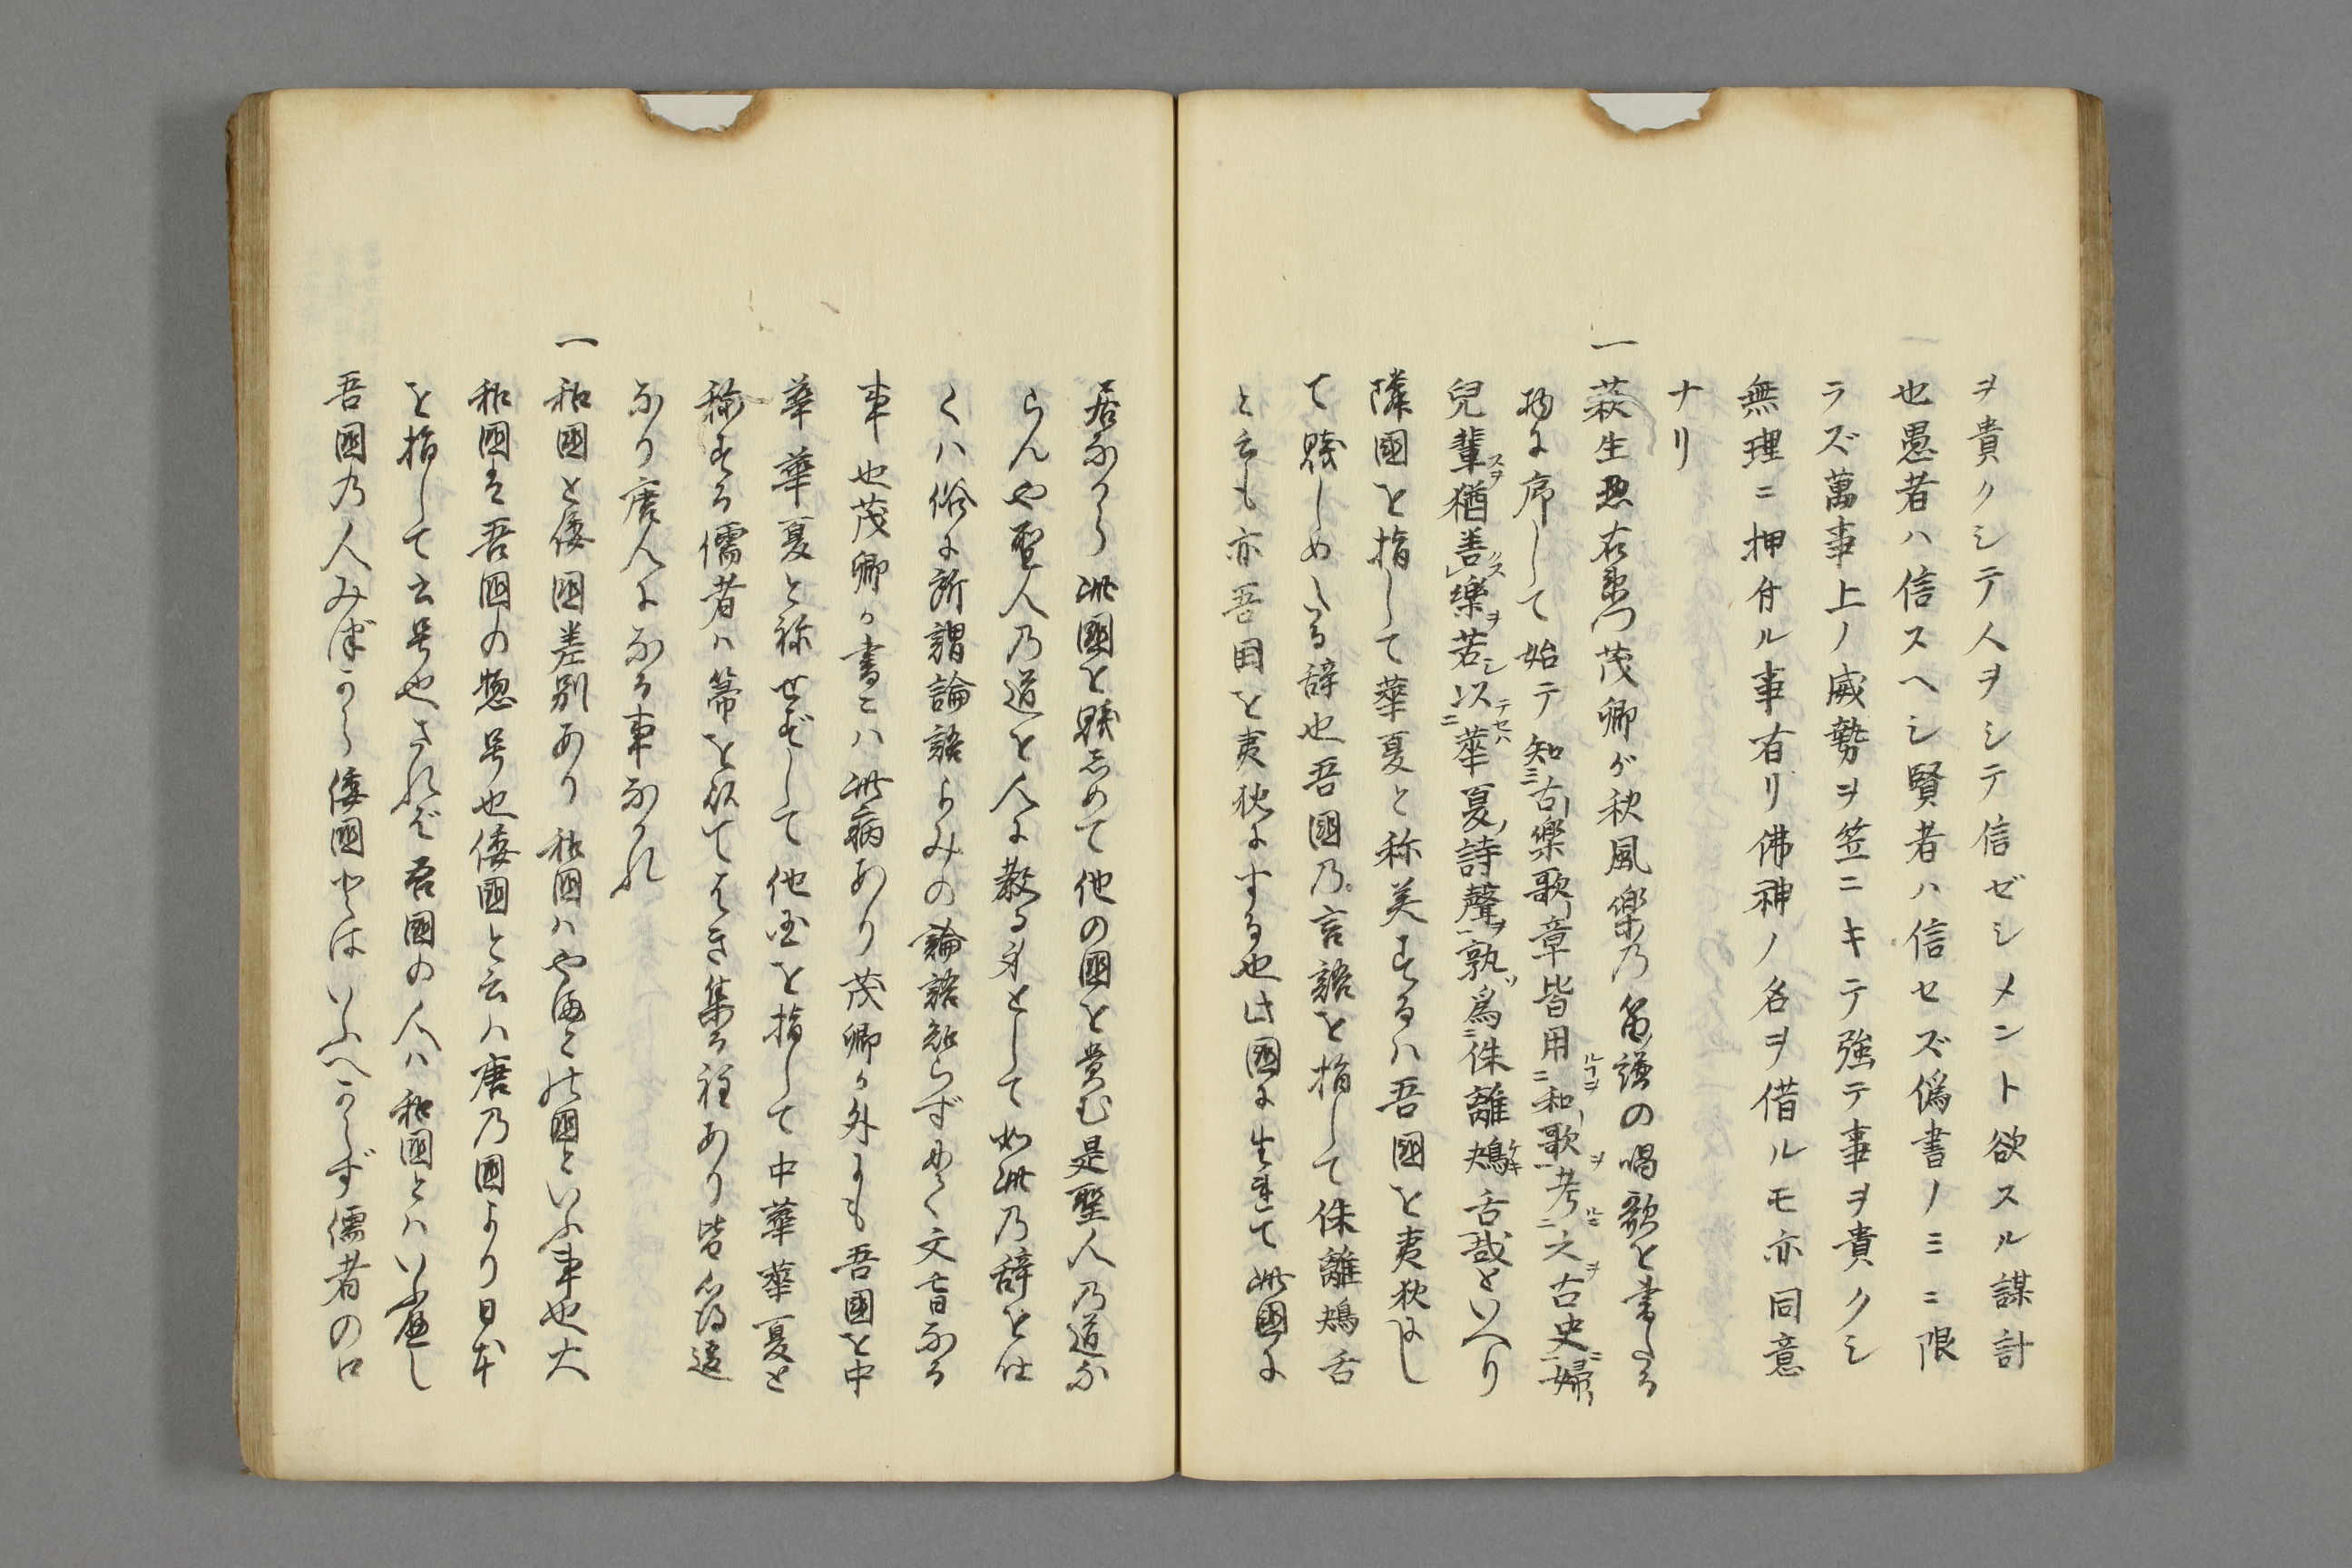 ヲ貴クシテ人ヲシテ信ゼシメント欲スル謀計
也愚者ハ信スヘシ賢者ハ信セズ偽書ノミニ限
ラズ萬事上ノ威勢ヲ笠ニキテ強テ事ヲ貴クシ
無理ニ押付ル事有リ佛神ノ名ヲ借ルモ亦同意
ナリ
一 荻生惣右衛門茂卿が秋風樂乃笛譜の唱歌を書たる
物に序して始テ知古樂歌章皆用和歌考之古史婦
兒輩猶善樂若以華夏詩聲孰為侏離鴃舌哉といへり
隣國を指して華夏と称美するハ吾國を夷狄にし
て賤しめたる辞也吾國乃言語を指して侏離鴃舌
と云も亦吾国を夷狄にする也此國に生れて此國に
居ながら此國を賤しめて他の國を貴む是聖人乃道な
らんや聖人乃道を人に教る身として如此乃辞を仕
くハ俗に所謂論語よみの論語知らず文盲なる
事也茂卿が書にハ此病あり茂卿が外にも吾國を中
華華夏と称せずして他国を指して中華華夏と
称する儒者ハ
なり唐人になる事なかれ
一 和國と倭國差別あり和国ハやまとの國といふ事也大
和國は吾國の惣号也倭國と云ハ唐乃國より日本
を指して云号也されば吾國の人ハ和國とハいふべし
吾國乃人みづから倭國とはいふべからず儒者の口